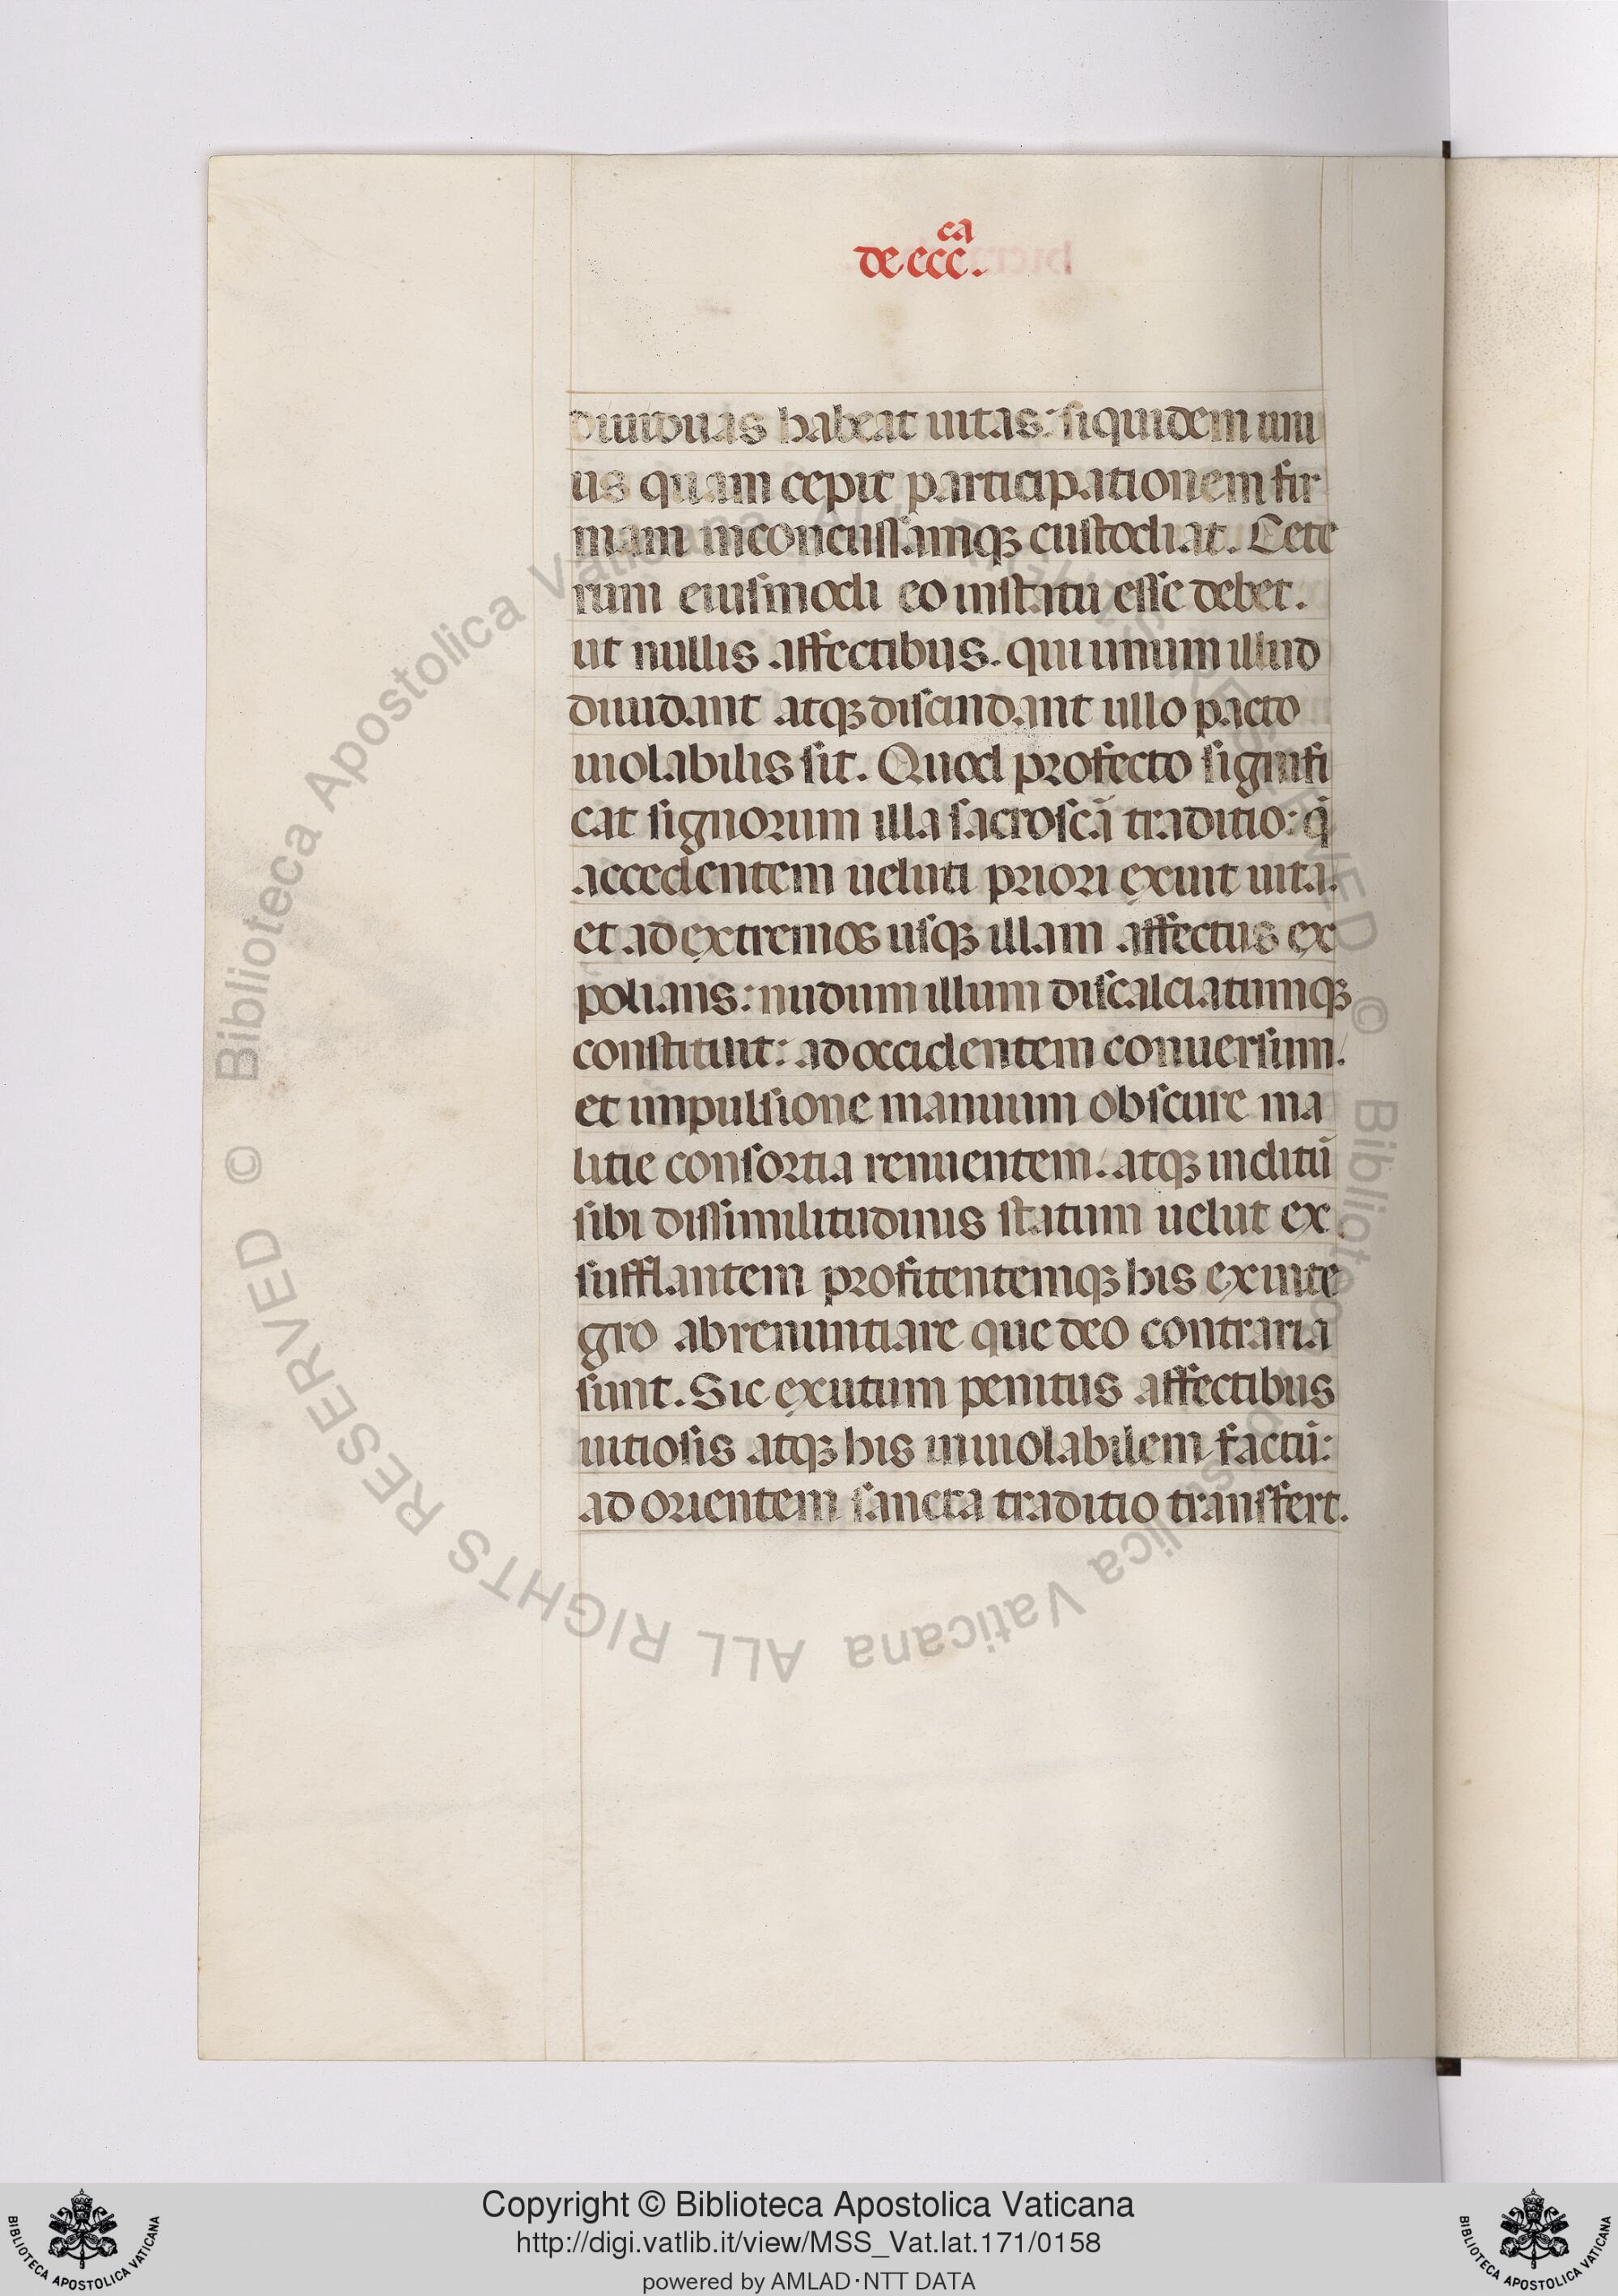 de ecc͞c^ca.
diuiduas habeat uitas: siquidem uni
us quam cepit participationem fir
mam inconcussamqꝫ custodiat. Cete
rum eiusmodi eo institutu esse debet.
ut nullis affectibus. qui unum illud
diuidant atqꝫ discindant ullo pacto
uiolabilis sit. Quod profecto signifi
cat signorum illa sacroscā traditio: q̇
accedentem ueluti priori exuit uita.
et ad extremos usqꝫ illam affectus ex
polians: nudum illum discalciatumqꝫ
constituit: ad occidentem conuersum.
et impulsione manuum obscure ma
litie consortia renuentem. atqꝫ inditū
sibi dissimilitudinis statum uelut ex
sufflantem profitentemqꝫ his ex inte
gro abrenuntiare que deo contraria
sunt. Sic exutum penitus affectibus
uitiosis atqꝫ his inuiolabilem factū:
ad orientem sancta traditio transfert.
© Biblioteca Apostolica Vaticana ALL RIGHTS RESERVED
Copyright © Biblioteca Apostolica Vaticana
http://digi.vatlib.it/view/MSS_Vat.lat.171/0158
powered by AMLAD·NTT DATA
BIBLIOTECA APOSTOLICA VATICANA
BIBLIOTECA APOSTOLICA VATICANA